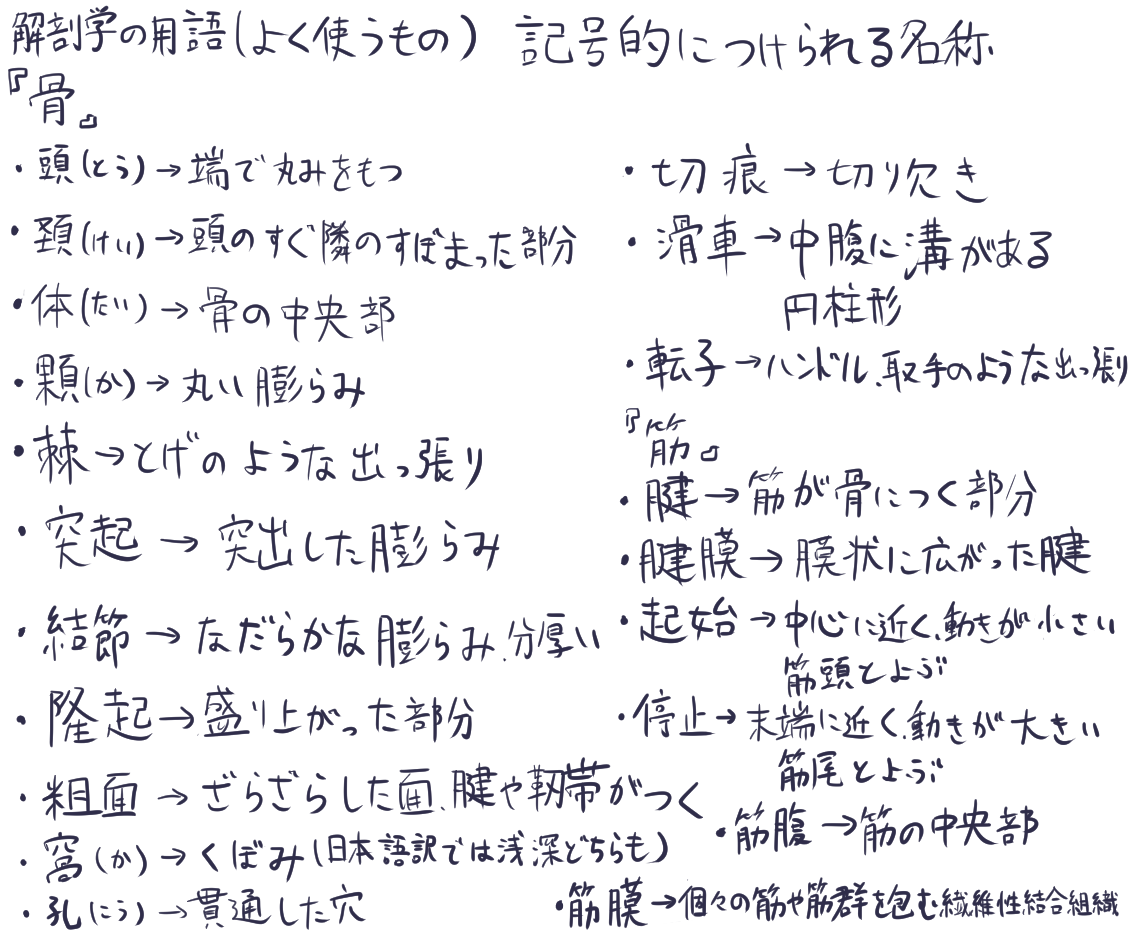 解剖学の用語(よく使うもの) 記号的につけられる名称
『骨』
・頭(とう)→端で丸みをもつ
・頚(けい)→頭のすぐ隣のすぼまった部分
・体(たい)→骨の中央部
・顆(か)→丸い膨らみ
・棘→とげのような出っ張り
・突起→突出した膨らみ
・結節→なだらかな膨らみ、分厚い
・隆起→盛り上がった部分
・粗面→ざらざらした面、腱や靭帯がつく
・窩(か)→くぼみ(日本語訳では浅深どちらも)
・孔(こう)→貫通した穴
・切痕→切り欠き
・滑車→中腹に溝がある
円柱形
・転子→ハンドル、取手のような出っ張り
『筋』
・腱→筋が骨につく部分
・腱膜→膜状に広がった腱
・起始→中心に近く、動きが小さい
筋頭とよぶ
・停止→末端に近く、動きが大きい
筋尾とよぶ
・筋腹→筋の中央部
・筋膜→個々の筋や筋群を包む繊維性結合組織